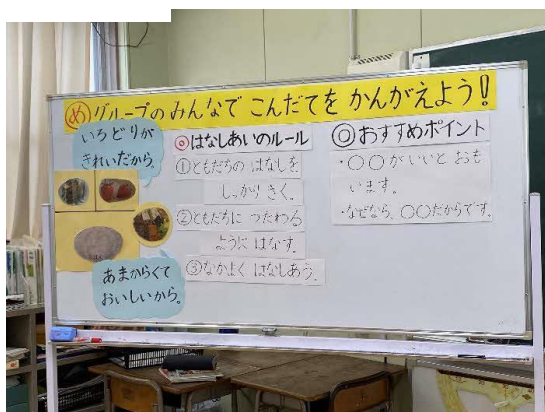 めグループのみんなでこんだてをかんがえよう!
いろどりが
きれいだから。
あまからくて
おいしいから。
◎はなしあいのルール
①ともだちの はなしを
しっかり きく。
②ともだちに つたわる
ように はなす。
③なかよく はなしあう。
◎おすすめポイント
・○○がいいと おも
います。
・なぜなら、○○だからです。